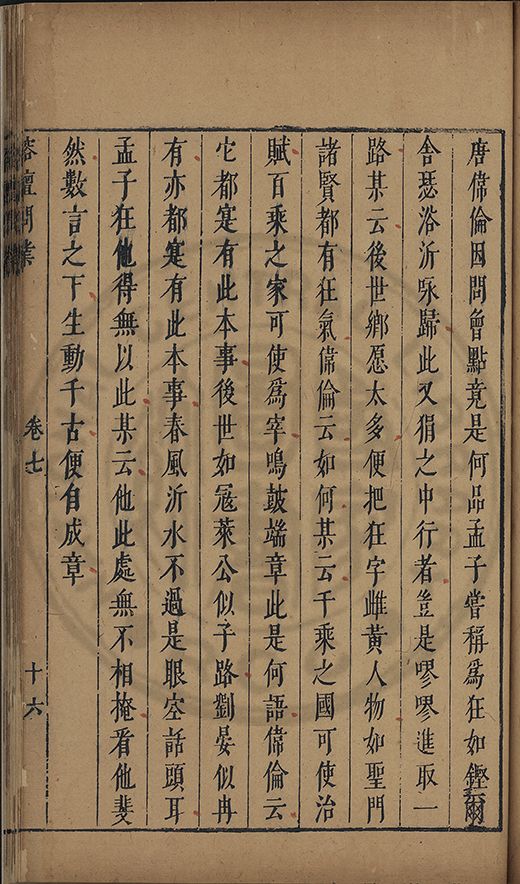 唐偉倫因問曾點竟是何品孟子嘗稱為狂如鏗爾
舍瑟浴沂咏歸此又狷之中行者豈是嘐嘐進取一
路某云後世鄉愿太多便把狂字雌黃人物如聖門
諸賢都有狂氣偉倫云如何某云千乘之國可使治
賦百乘之家可使為宰鳴鼓端章此是何語偉倫云
它都寔有此本事後世如寇萊公似子路劉晏似冉
有亦都寔有此本事春風沂水不過是眼空話頭耳
孟子狂他得無以此某云他此處無不相掩看他斐
然數言之下生動千古便自成章
榕壇問業
卷七
十六